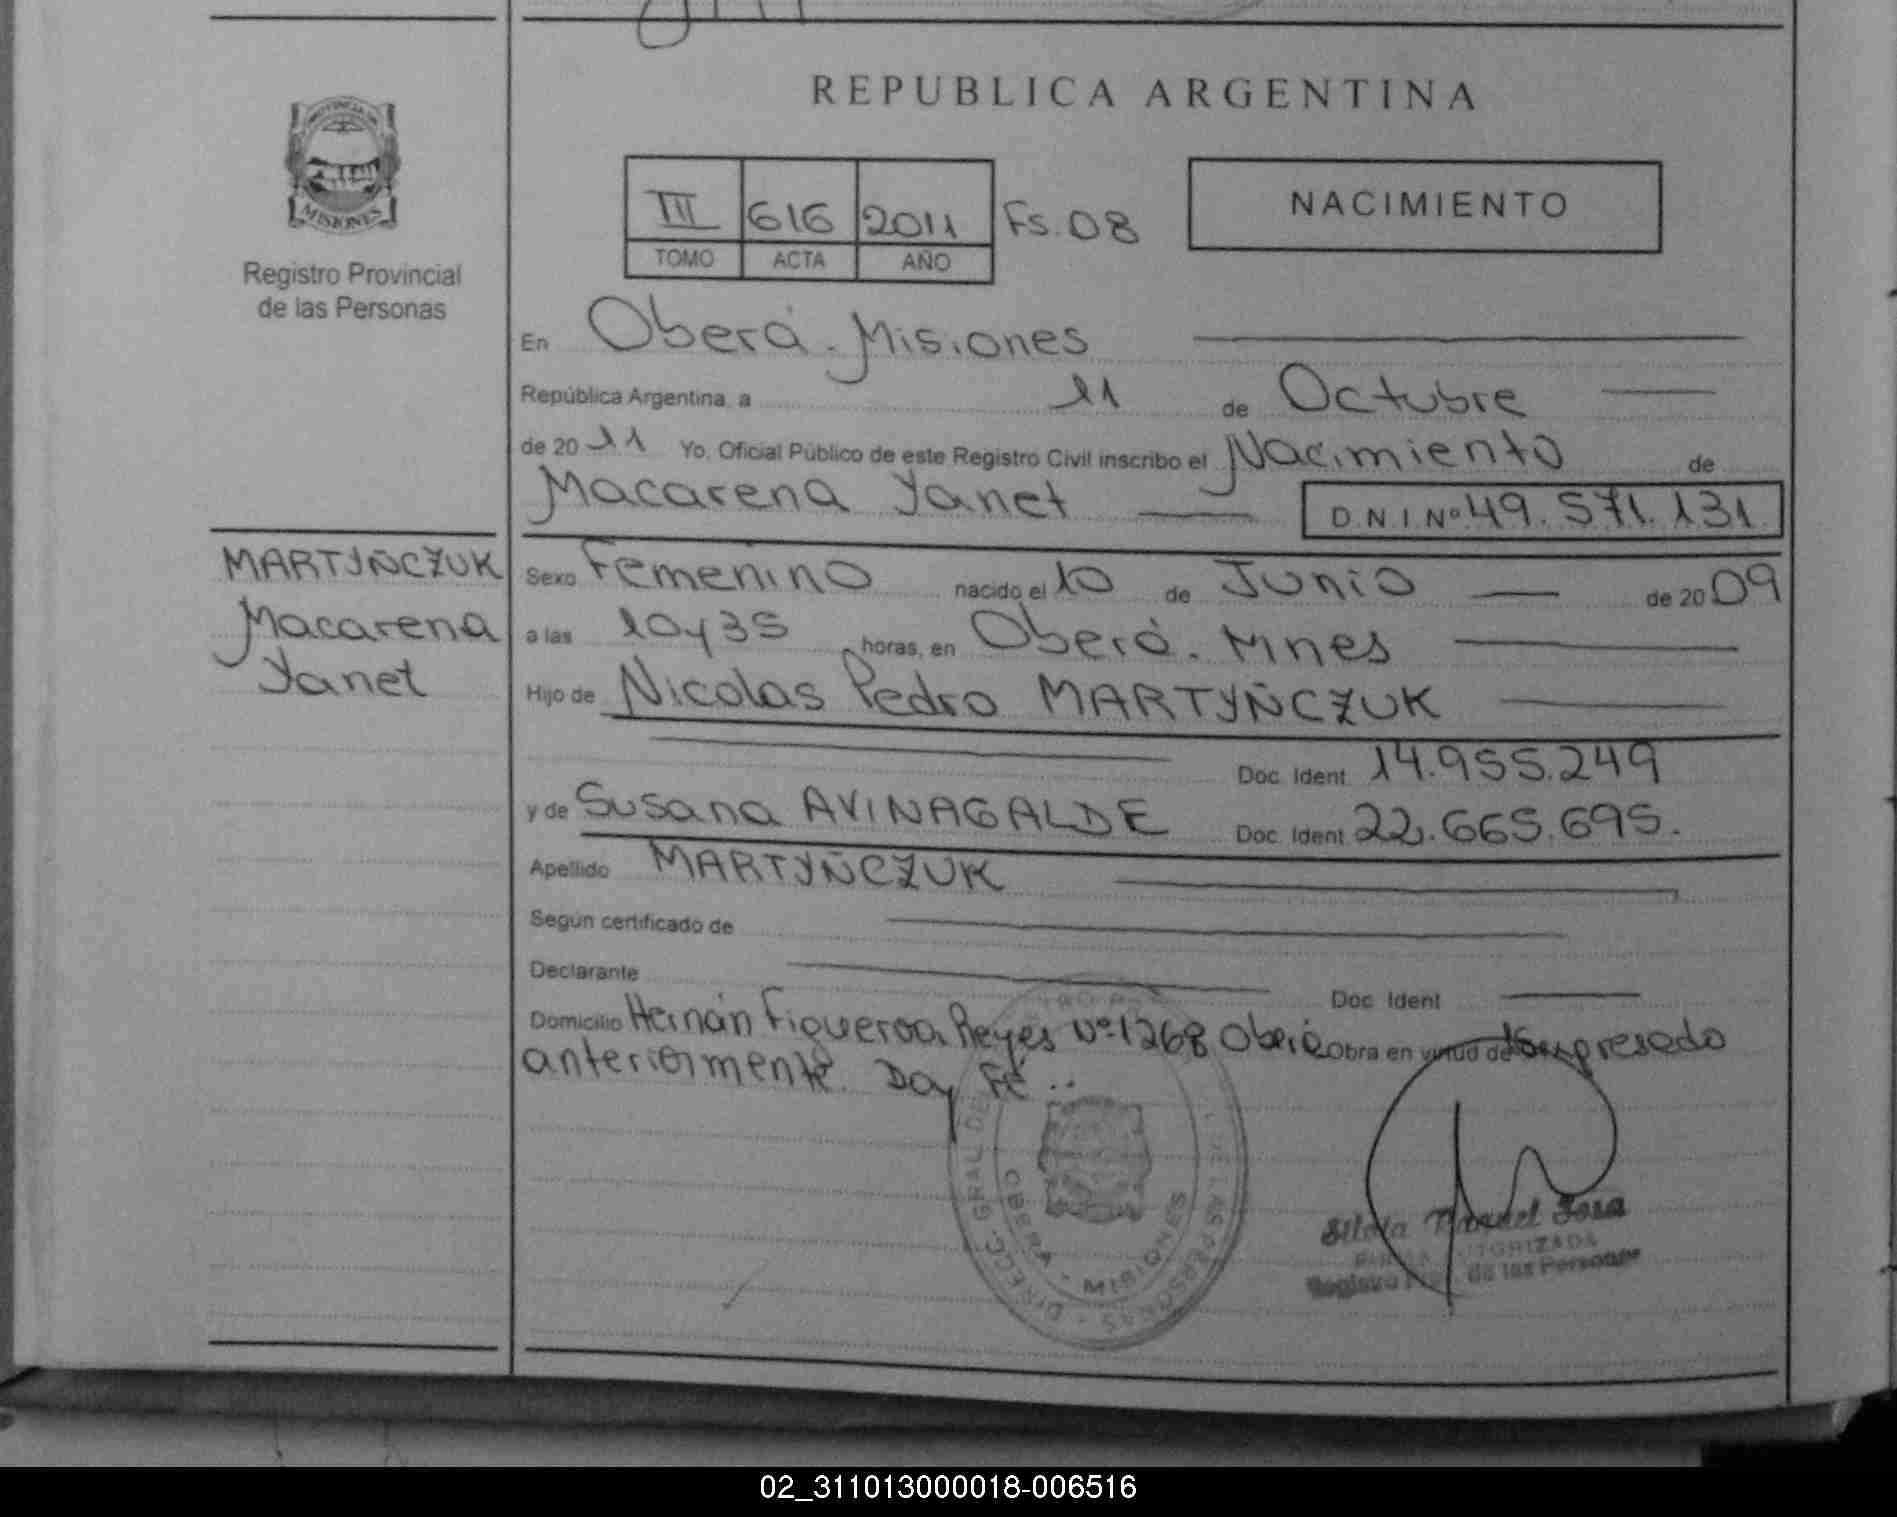 REPUBLICA ARGENTINA
PROVINCIA DE
MISIONES
Registro Provincial
de las Personas
III 616 2011 Fs. 08
TOMO ACTA AÑO
NACIMIENTO
En Oberá. Misiones
República Argentina, a 11 de Octubre
de 20 11 Yo, Oficial Público de este Registro Civil inscribo el Nacimiento de
Macarena Yanet D.N.I Nº 49.571.131
MARTYÑCZUK
Macarena
Yanet
Sexo Femenino nacido el 10 de Junio de 20 09
a las 10 y 35 horas, en Oberá. Mnes
Hijo de Nicolas Pedro MARTYÑCZUK
Doc. Ident. 14.955.249
y de Susana AVINAGALDE Doc. Ident. 22.665.695.
Apellido MARTYÑCZUK
Según certificado de
Declarante Doc. Ident
Domicilio Hernán Figueroa Reyes Nº 1268 Oberá Obra en virtud de lo expresado
anteriormente. Doy Fé..
DIRECC. GRAL DE LAS PERSONAS
OBERA - MISIONES
Sosa
FIRMA AUTORIZADA
Registro de las Personas
02_311013000018-006516